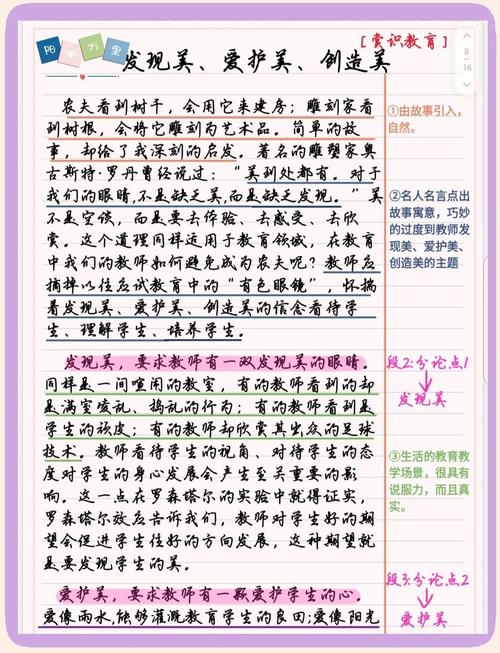 [赏识教育]
阳光万里
发现美、爱护美、创造美
8/16
农夫看到树干，会用它来建房；雕刻家看
到树根，会将它雕刻为艺术品。简单的故
事，却给了我深刻的启发。著名的雕塑家奥
古斯特·罗丹曾经说过：“美到处都有。对于
我们的眼睛，不是缺乏美，而是缺乏发现。”美
不是空谈，而是要去体验、去感受、去欣
赏。这个道理同样适用于教育领域，在教育
中我们的教师如何避免成为农夫呢？教师应
摘掉以往应试教育中的“有色眼镜”，怀揣
着发现美、爱护美、创造美的信念看待学
生、理解学生、培养学生。
发现美，要求教师有一双发现美的眼睛。
同样是一间喧闹的教室，有的教师看到的却
是满室凌乱、捣乱的行为；有的教师看到是
学生的顽皮；有的教师却欣赏其出众的足球
技术。教师看待学生的视角、对待学生的态
度对学生的身心发展会产生至关重要的影
响。这一点在罗森塔尔的实验中就得证实，
罗森塔尔效应告诉我们，教师对学生好的期
望会促进学生往好的方向发展，这种期望就
是要发现学生的美。
爱护美，要求教师有一颗爱护学生的心。
爱像雨水，能够灌溉教育学生的良田；爱像阳光
①由故事引入，
自然。
②名人名言点出
故事寓意，巧妙
的过度到教师发
现美、爱护美、
创造美的主题
段2：分论点1
发现美
③生活的教育教
学场景，很具有
说服力，而且真
实。
段3：分论点2
爱护美